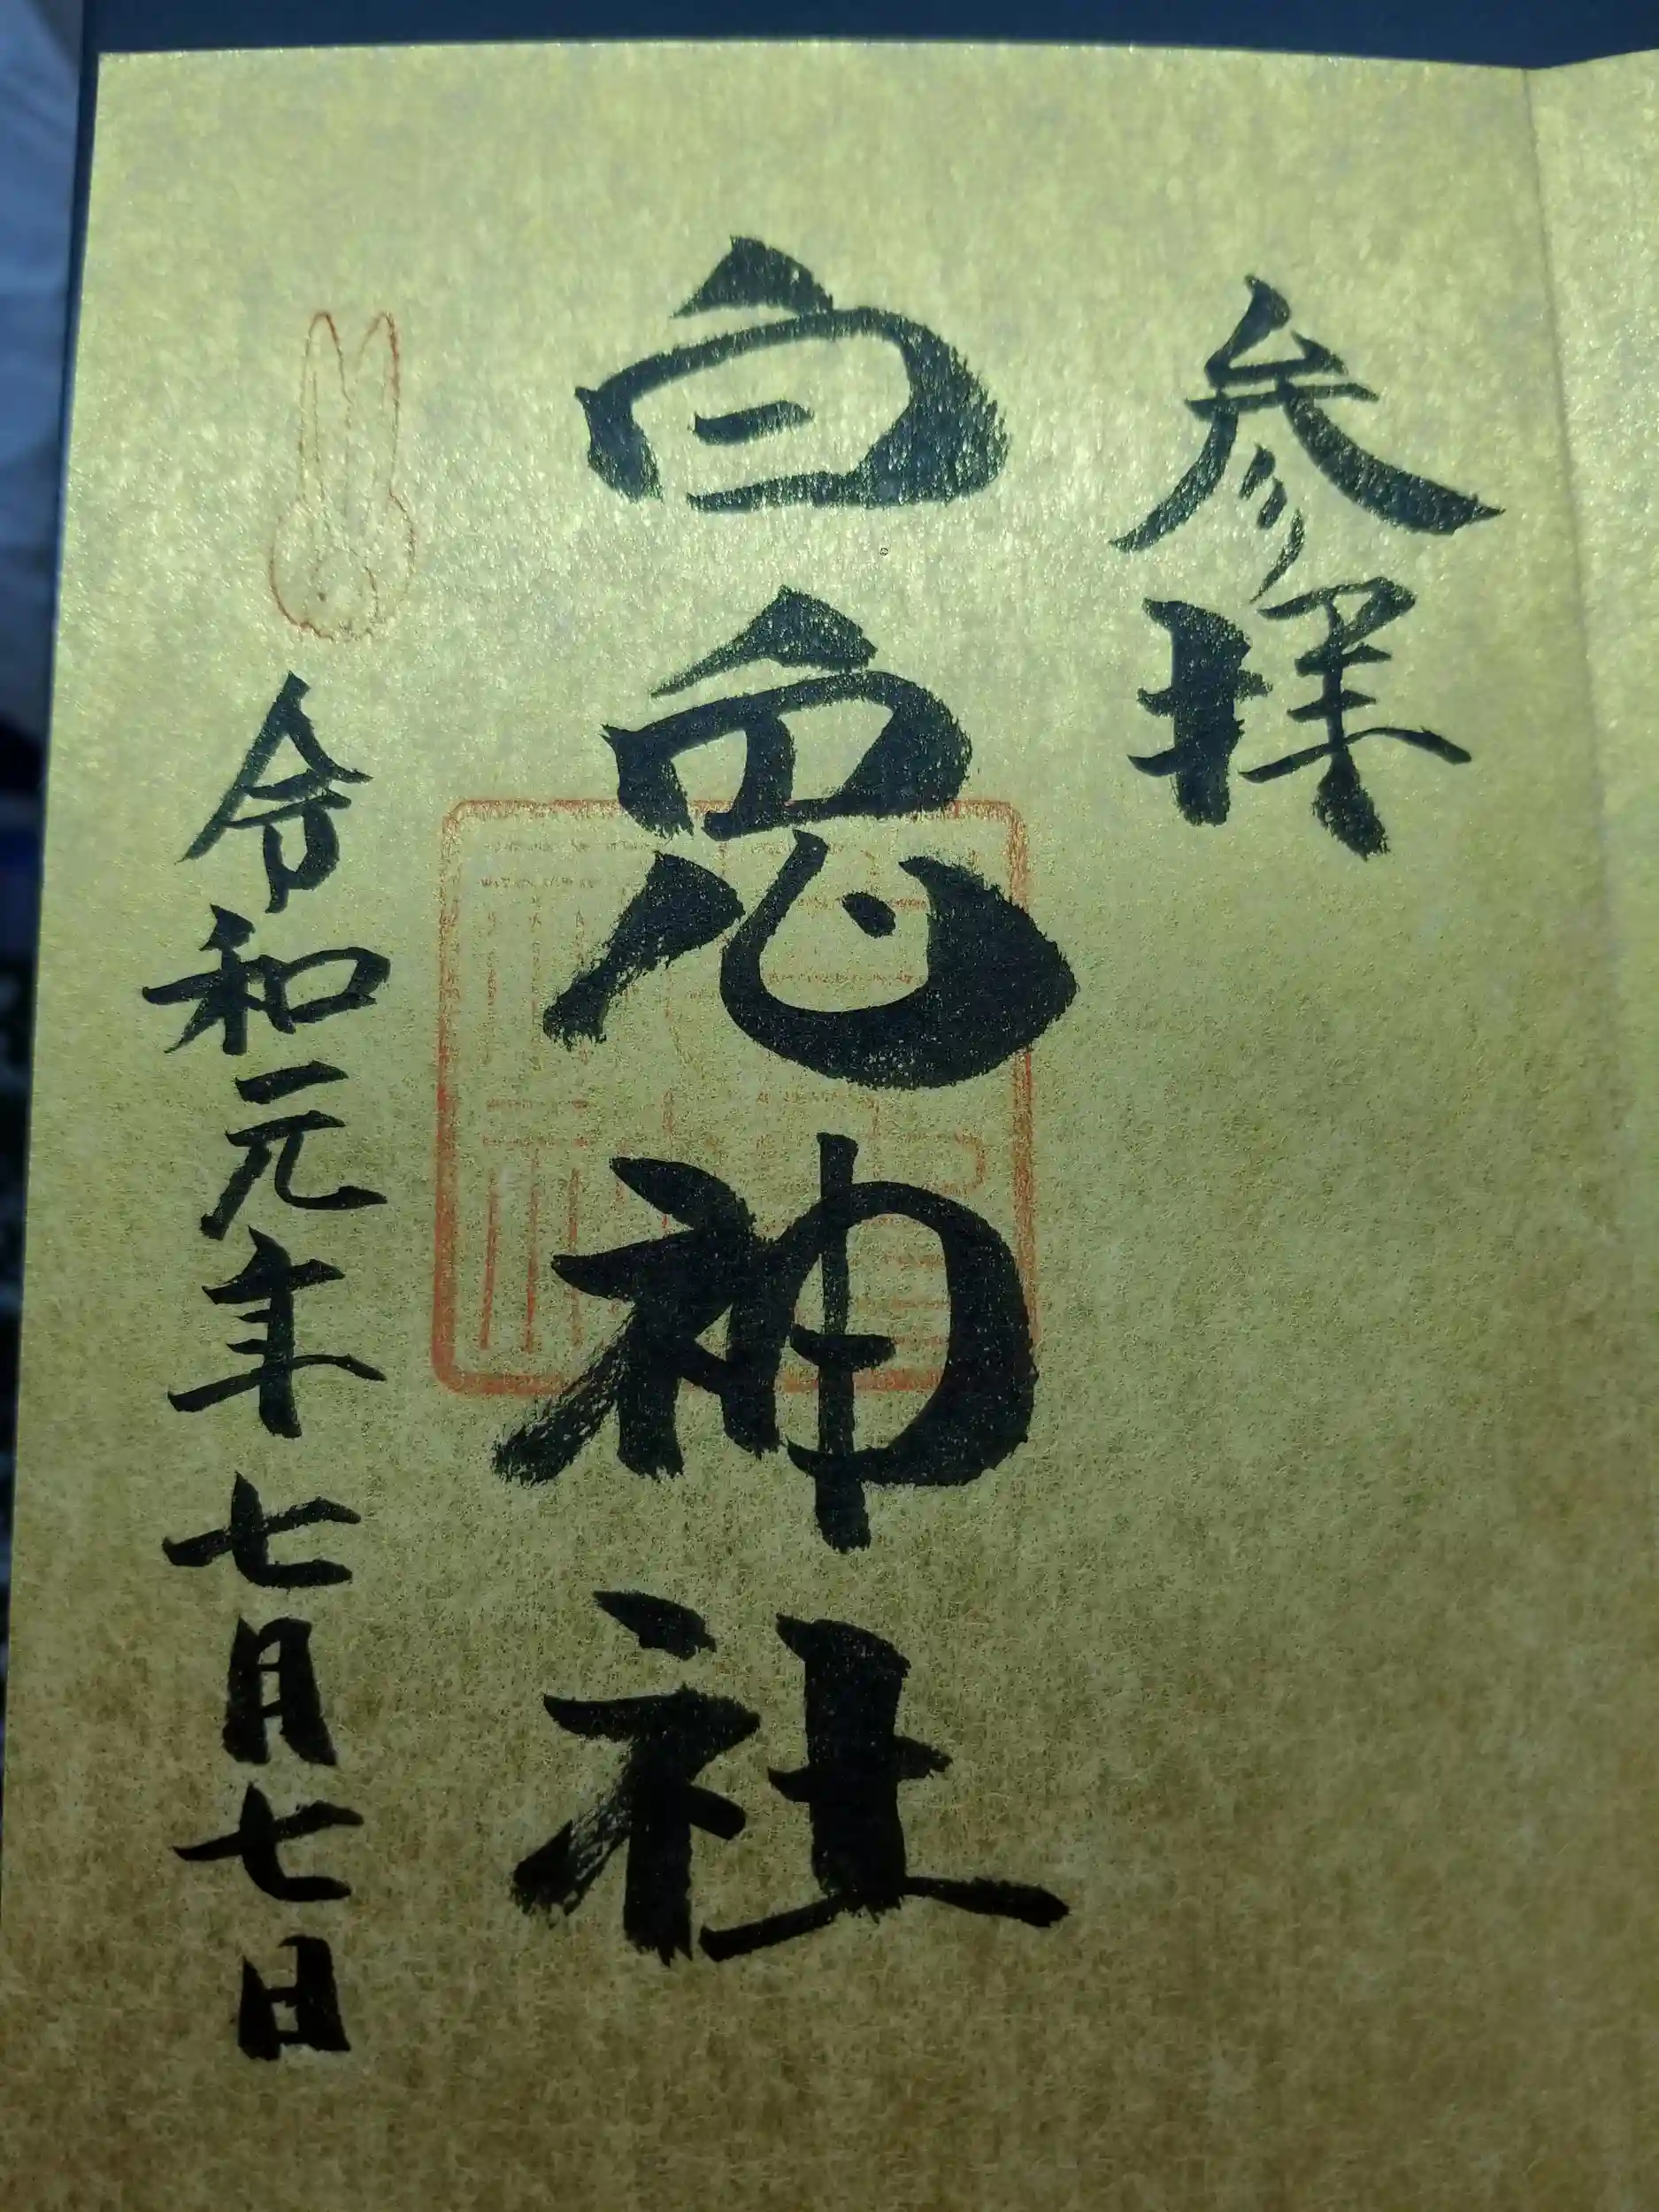 参拝
白兎神社
令和元年七月七日